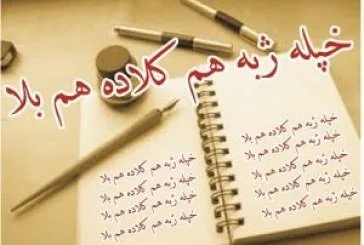 خپله ژبه هم کلاده هم بلا
خپله ژبه هم کلاده هم بلا
خپله ژبه هم کلاده هم بلا
خپله ژبه هم کلاده هم بلا
خپله ژبه هم کلاده هم بلا
خپله ژبه هم کلاده هم بلا
خپله ژبه هم کلاده هم بلا
خپله ژبه هم کلاده هم بلا
خپله ژبه هم کلاده هم بلا
خپله ژبه هم کلاده هم بلا